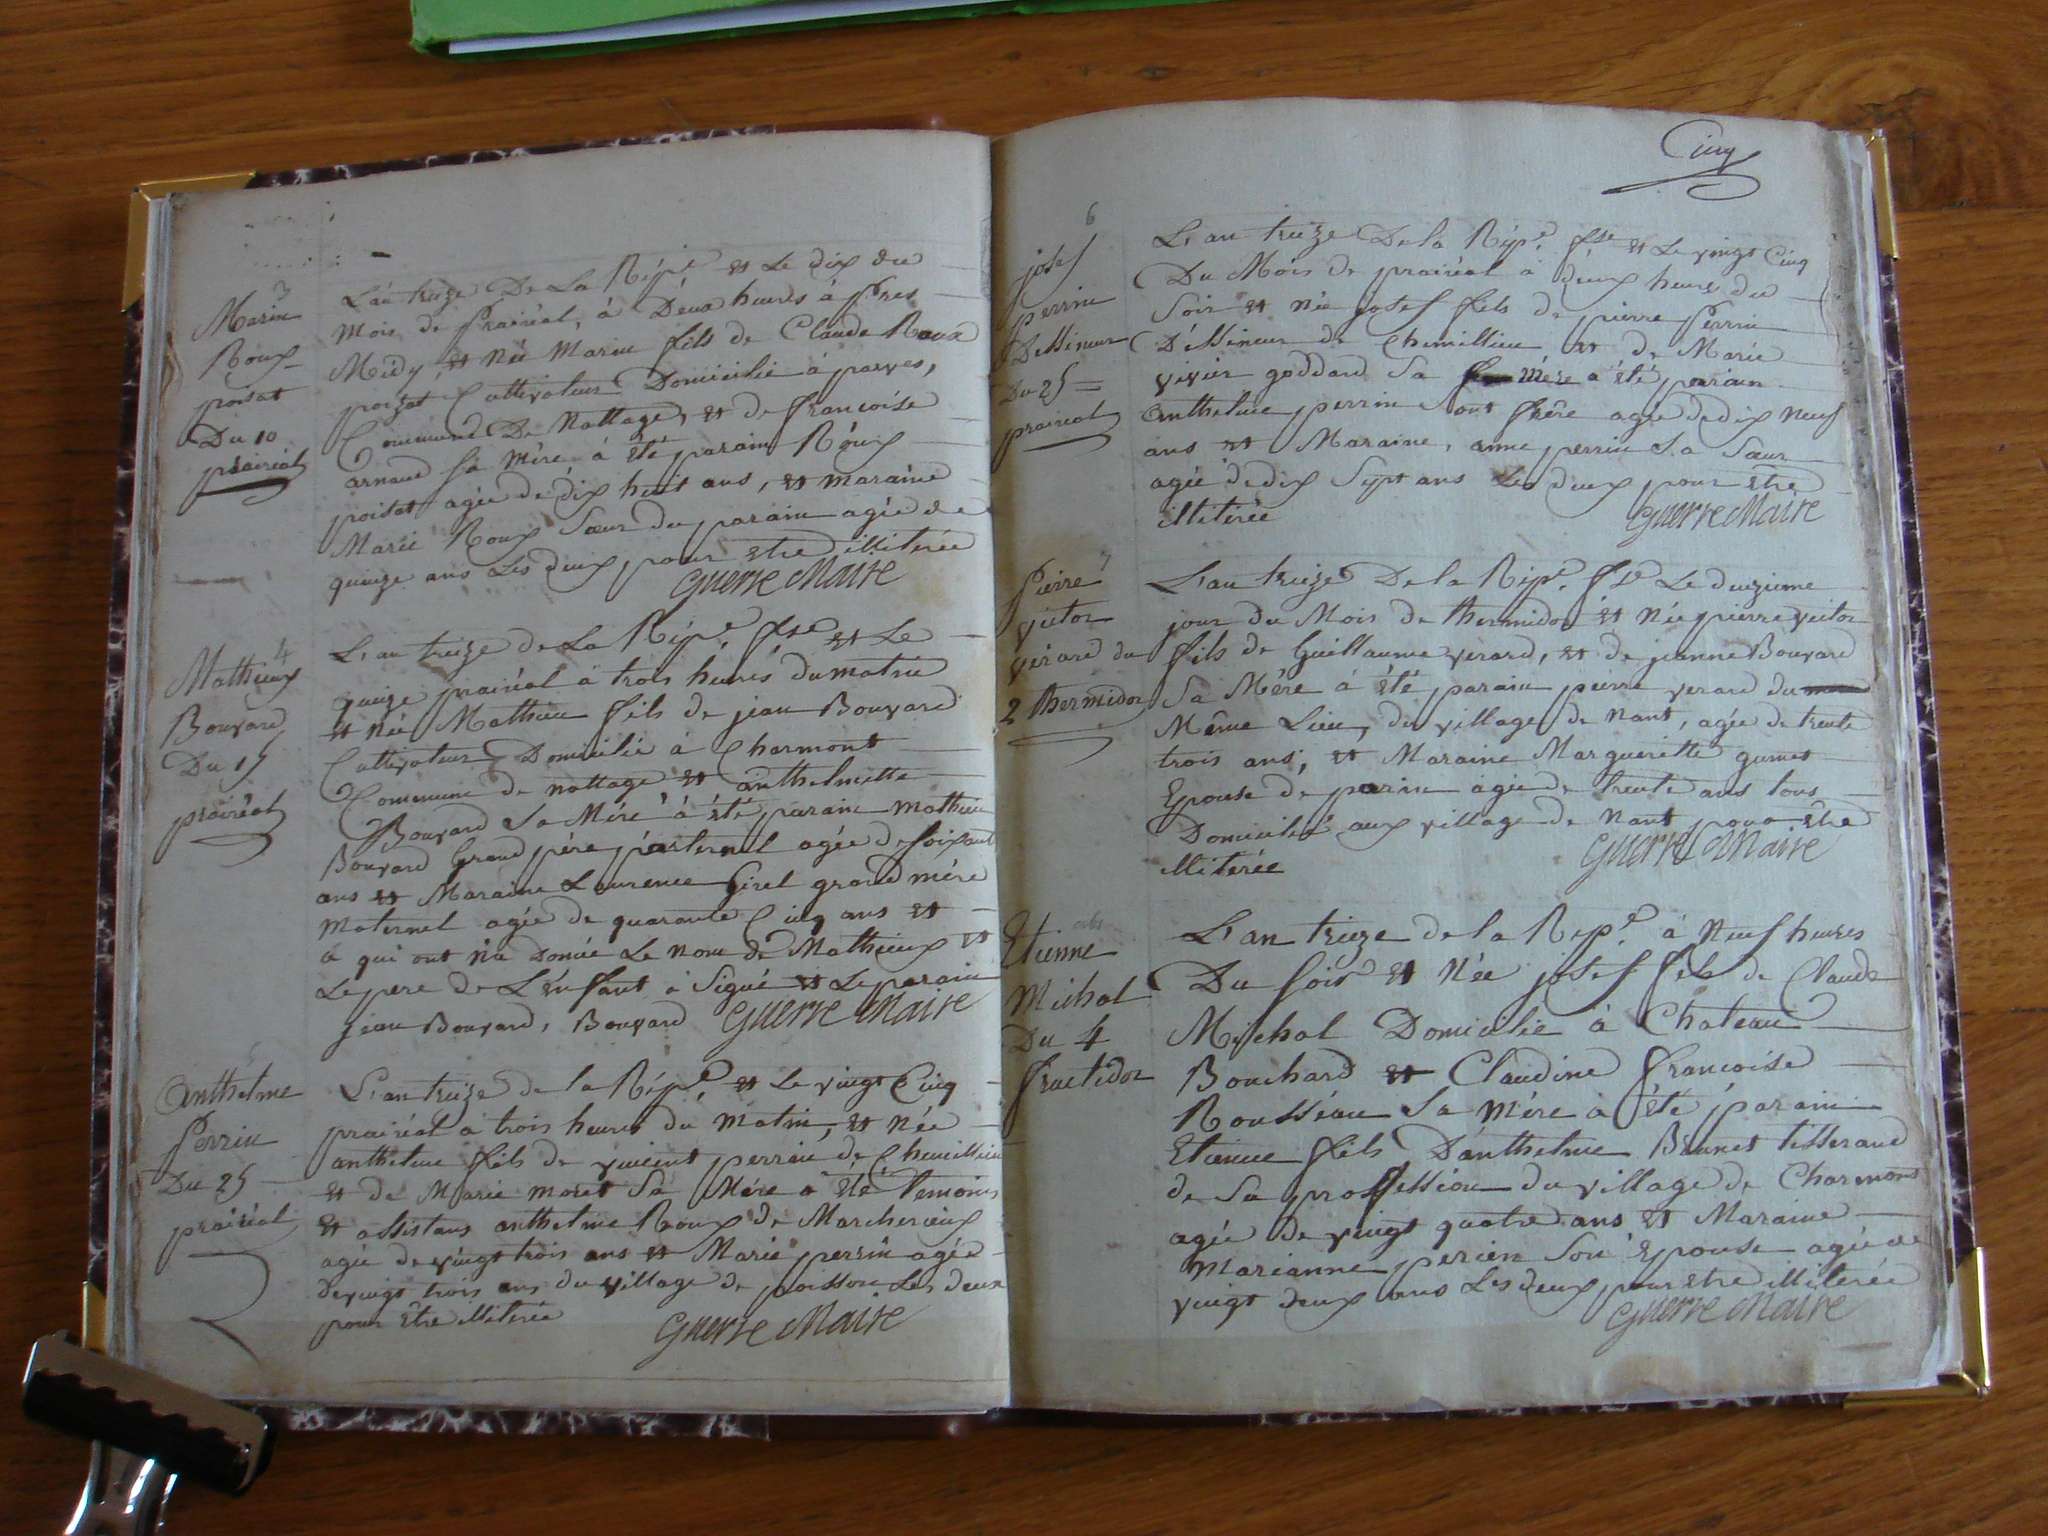 3
Marin
Roux
poisat
Du 10
prairéal
L'an treize De La Rép.e et Le dix du
Mois de Prairéal, à Deux heures à pres
Midy, et Née Marin fils de Claude Roux
poizat Cultivateur Domicilié à parves,
Commune De Nattage, et de francoise
arnaud sa mère à été parain Roux
poisat agée de dix huit ans, et maraine
Marie Roux Sœur du parain agée de
quinze ans Les deux pour etre illiterée
Guerre Maire
4
Mathieux
Bouvard
Du 15
prairéal
L'an treize de La Rép.e fse et Le
quinze prairéal à trois heures du matin
et Née Mathieu fils de jean Bouvard
Cultivateur Domicilié à Charmont
Commune de nattage et anthelmette
Bouvard Sa Mère à été parain mathieu
Bouvard Grand père paternel agée de soixant
ans et Maraine Laurence Girel grand mère
Maternel agée de quarante Cinq ans et
à qui ont n'a Donnée Le nom de Mathieux et
Le pere de L'enfant à Signé et Le parain
jean Bouvard, Bouvard Guerre Maire
anthelme
Perrin
Du 25
prairéal
L'an treize de la Rép.e et Le vingt Cinq
prairéal à trois heures du Matin, et Née
anthelme fils de vincent perrin de Chemillieu
et de Marie moret Sa Mère à été temoins
et assistans anthelme Roux de Marcherieux
agée de vingt trois ans et Marie perrin agée
de vingt trois ans du village de poisson Les deux
pour être illiterée
Guerre Maire
Cinq
6
josef
perrin
Dessineur
Du 25
prairéal
L'an treize De la Rép.e fse et Le vingt Cinq
Du Mois de prairéal à deux heures du
Soir et Née josef fils de pierre perrin
Dessineur de Chemillieu et de Marie
vivier goddard Sa Mère à été parain
anthelme perrin Sont frère agée de dix neuf
ans et Maraine, anne perrin Sa Sœur
agée de dix Sept ans Les deux pour etre
illiterée
Guerre Maire
7
Pierre
victor
verard du
2 thermidor
L'an treize De la Rép.e fse Le deuzieme
jour du Mois de thermidor et Née pierre victor
fils de Guillaume verard, et de jeanne Bouvard
Sa Mère à été parain pierre verard du
Même Lieu, du village de nant, agée de trente
trois ans, et Maraine Margueritte gumet
Epouse de parain agée de trente ans tous
Domicilié aux village de nant pour être
illiterée
Guerre Maire
Etienne
Michal
Du 4
fructidor
L'an treize de la Rep.e à Neuf heures
Du soir et Née josef fils de Claude
Mischal Domicilié à Chateau
Bouchard et Claudine francoise
Rousséau Sa mère à été parain
Etienne fils D'anthelme Brunet tisserand
de Sa proffession du village de Charmont
agée de vingt quatre ans et Maraine
Marianne perien Son Epouse agée de
vingt deux ans Les deux pour etre illiterée
Guerre Maire